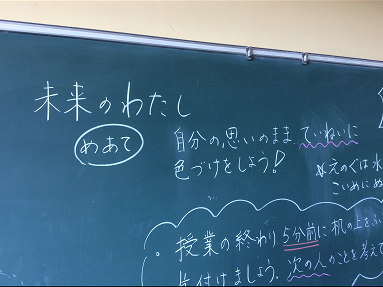 未来のわたし
めあて
自分の思いのまま、ていねいに
色づけをしよう!
えのぐは水
こいめにぬ
授業の終わり5分前に机の上をふ
片付けましょう。次の人のことを考えて